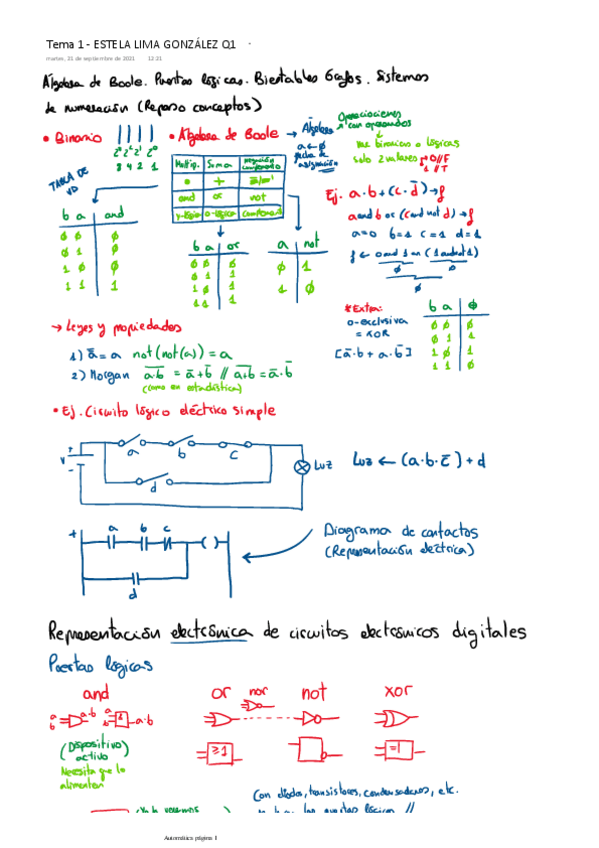 Tema 1 - ESTELA LIMA GONZÁLEZ Q1
martes, 21 de septiembre de 2021 12:21
Álgebra de Boole. Puertas lógicas. Biestables. Grafos. Sistemas
de numeración (Repaso conceptos)
• Binario
2³ 2² 2¹ 2⁰
8 4 2 1
• Álgebra de Boole → Álgebra
a ← ϕ
flecha de
asignación
Operaciones
con operandos
Var binarias o lógicas
solo 2 valores
0//F
1//T
Multip. Suma negación
complemento
• +
and or not
y-lógico o-lógica complemento
TABLA DE
VD
b a and
ϕ ϕ ϕ
ϕ 1 ϕ
1 ϕ ϕ
1 1 1
b a or
ϕ ϕ ϕ
ϕ 1 1
1 ϕ 1
1 1 1
a not
ϕ 1
1 ϕ
Ej. a·b+(c·d̄)→f
a and b or (c and not d)→f
a=0 b=1 c=1 d=1
f ← 0 and 1 or (1 and not 1)
ϕ ϕ
ϕ
→ Leyes y propiedades
1) a̿ = a not(not(a)) = a
2) Morgan a·b̅ = ā+b̄ // a+b̅ = ā·b̄
(como en estadística)
*Extra:
o-exclusiva
= XOR
[ā·b + a·b̄]
b a ⊕
ϕ ϕ ϕ
ϕ 1 1
1 ϕ 1
1 1 ϕ
• Ej. Circuito lógico eléctrico simple
V + - a b c d Luz
Luz ← (a·b·c̄) + d
+ a b c
d
Diagrama de contactos
(Representación eléctrica)
Representación electrónica de circuitos electrónicos digitales
Puertas lógicas
and or nor not xor
a b a·b a b & a·b
≥1 1 =1
(Dispositivo)
activo
Necesita que lo
alimenten
Con diodos, transistores, condensadores, etc.
Automática página 1